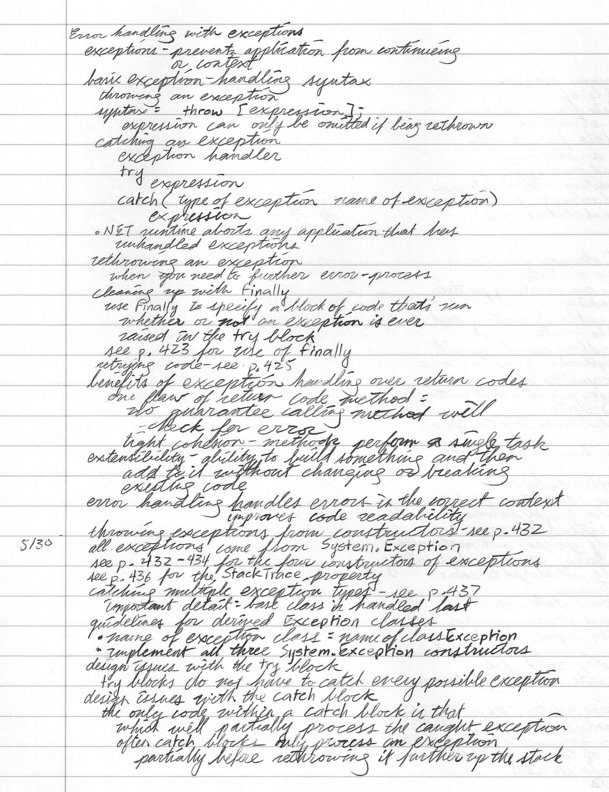 Error handling with exceptions
exceptions - prevents application from continueing
or context
basic exception-handling syntax
throwing an exception
syntax = throw [expression];
expression can only be omitted if being rethrown
catching an exception
exception handler
try
expression
catch( type of exception name of exception)
expression
.NET runtime aborts any application that has
unhandled exceptions
rethrowing an exception
when you need to further error-process
cleaning up with Finally
use Finally to specify a block of code that's run
whether or not an exception is ever
raised in the try block
see p. 423 for use of finally
retrying code - see p. 425
benefits of exception handling over return codes
one flaw of return code method =
no guarantee calling method will
check for error
tight cohesion - methods perform a single task
extensibility - ability to build something and then
add to it without changing or breaking
existing code
error handling handles errors in the correct context
improves code readability
throwing exceptions from constructors - see p. 432
5/30
all exceptions come from System.Exception
see p. 432-434 for the four constructors of exceptions
see p. 436 for the StackTrace property
catching multiple exception types - see p. 437
important detail = base class is handled last
guidelines for derived Exception classes
• name of exception class = name of class Exception
• implement all three System.exception constructors
design issues with the try block
try blocks do not have to catch every possible exception
design issues with the catch block
the only code within a catch block is that
which will partially process the caught exception
often catch blocks only process an exception
partially before rethrowing it further up the stack